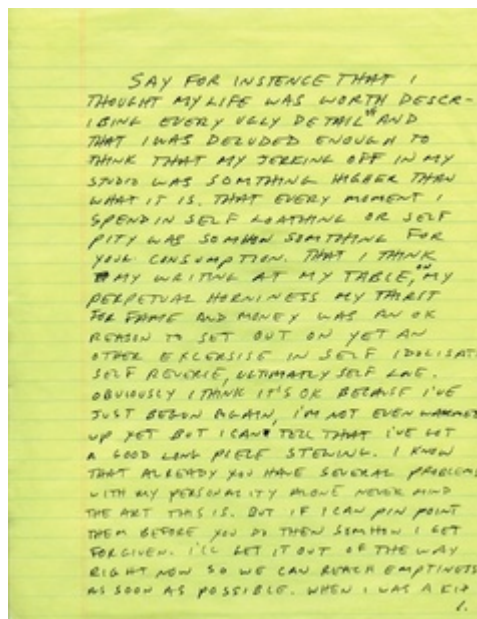 SAY FOR INSTENCE THAT I
THOUGHT MY LIFE WAS WORTH DESCR-
IBING EVERY UGLY DETAIL OF AND
THAT I WAS DELUDED ENOUGH TO
THINK THAT MY JERKING OFF IN MY
STUDIO WAS SOMTHING HIGHER THAN
WHAT IT IS. THAT EVERY MOMENT I
SPEND IN SELF LOATHING OR SELF
PITY WAS SOMHOW SOMTHING FOR
YOUR CONSUMPTION. THAT I THINK
MY WRITING AT MY TABLE, ON MY
PERPETUAL HORNINESS MY THIRST
FOR FAME AND MONEY WAS AN OK
REASON TO SET OUT ON YET AN
OTHER EXCERSISE IN SELF IDOLISAT
SELF REVERIE, ULTIMATLY SELF
OBVIOUSLY I THINK IT'S OK BECAUSE I'VE
JUST BEGUN AGAIN, I'M NOT EVEN WARMED
UP YET BUT I CAN TELL THAT I'VE GOT
A GOOD LONG PIECE STEWING. I KNOW
THAT ALREADY YOU HAVE SEVERAL PROBLEMS
WITH MY PERSONALITY ALONE NEVER MIND
THE ART THIS IS. BUT IF I CAN PIN POINT
THEM BEFORE YOU DO THEN SOMHOW I GET
FORGIVEN. I'LL GET IT OUT OF THE WAY
RIGHT NOW SO WE CAN REACH EMPTINESS
AS SOON AS POSSIBLE. WHEN I WAS A KID
1.